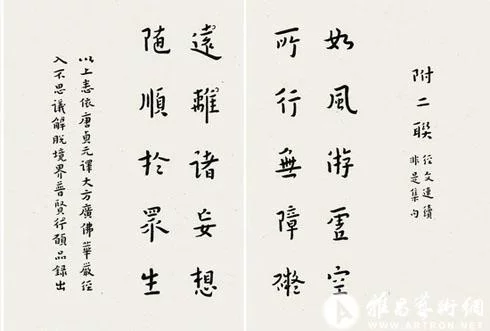 附二联 經文連續
非是集句
如風游虛空
所行無障礙
遠離諸妄想
随順於眾生
以上悉依唐貞元譯大方廣佛華嚴経
入不思議解脫境界普賢行願品錄出
雅昌藝術網
WWW.ARTRON.NET